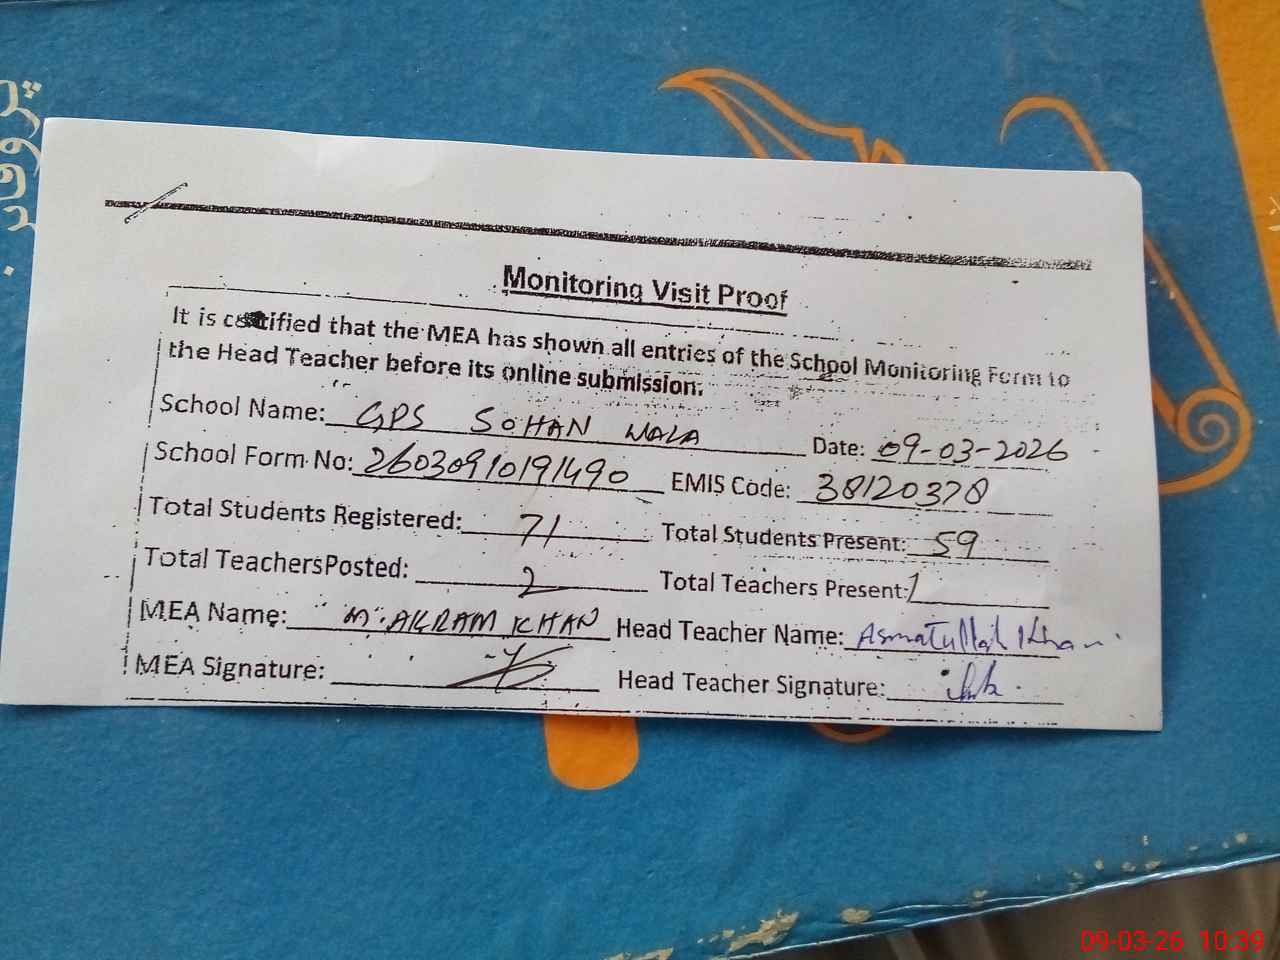 پروفا
Monitoring Visit Proof
It is certified that the MEA has shown all entries of the School Monitoring Form to
the Head Teacher before its online submission.
School Name: GPS SOHAN WALA Date: 09-03-2026
School Form No: 26030910191490 EMIS Code: 38120378
Total Students Registered: 71 Total Students Present: 59
Total Teachers Posted: 2 Total Teachers Present: 1
MEA Name: M. AKRAM KHAN Head Teacher Name: Asmatullah Khan
MEA Signature: Head Teacher Signature:
09-03-26 10:39